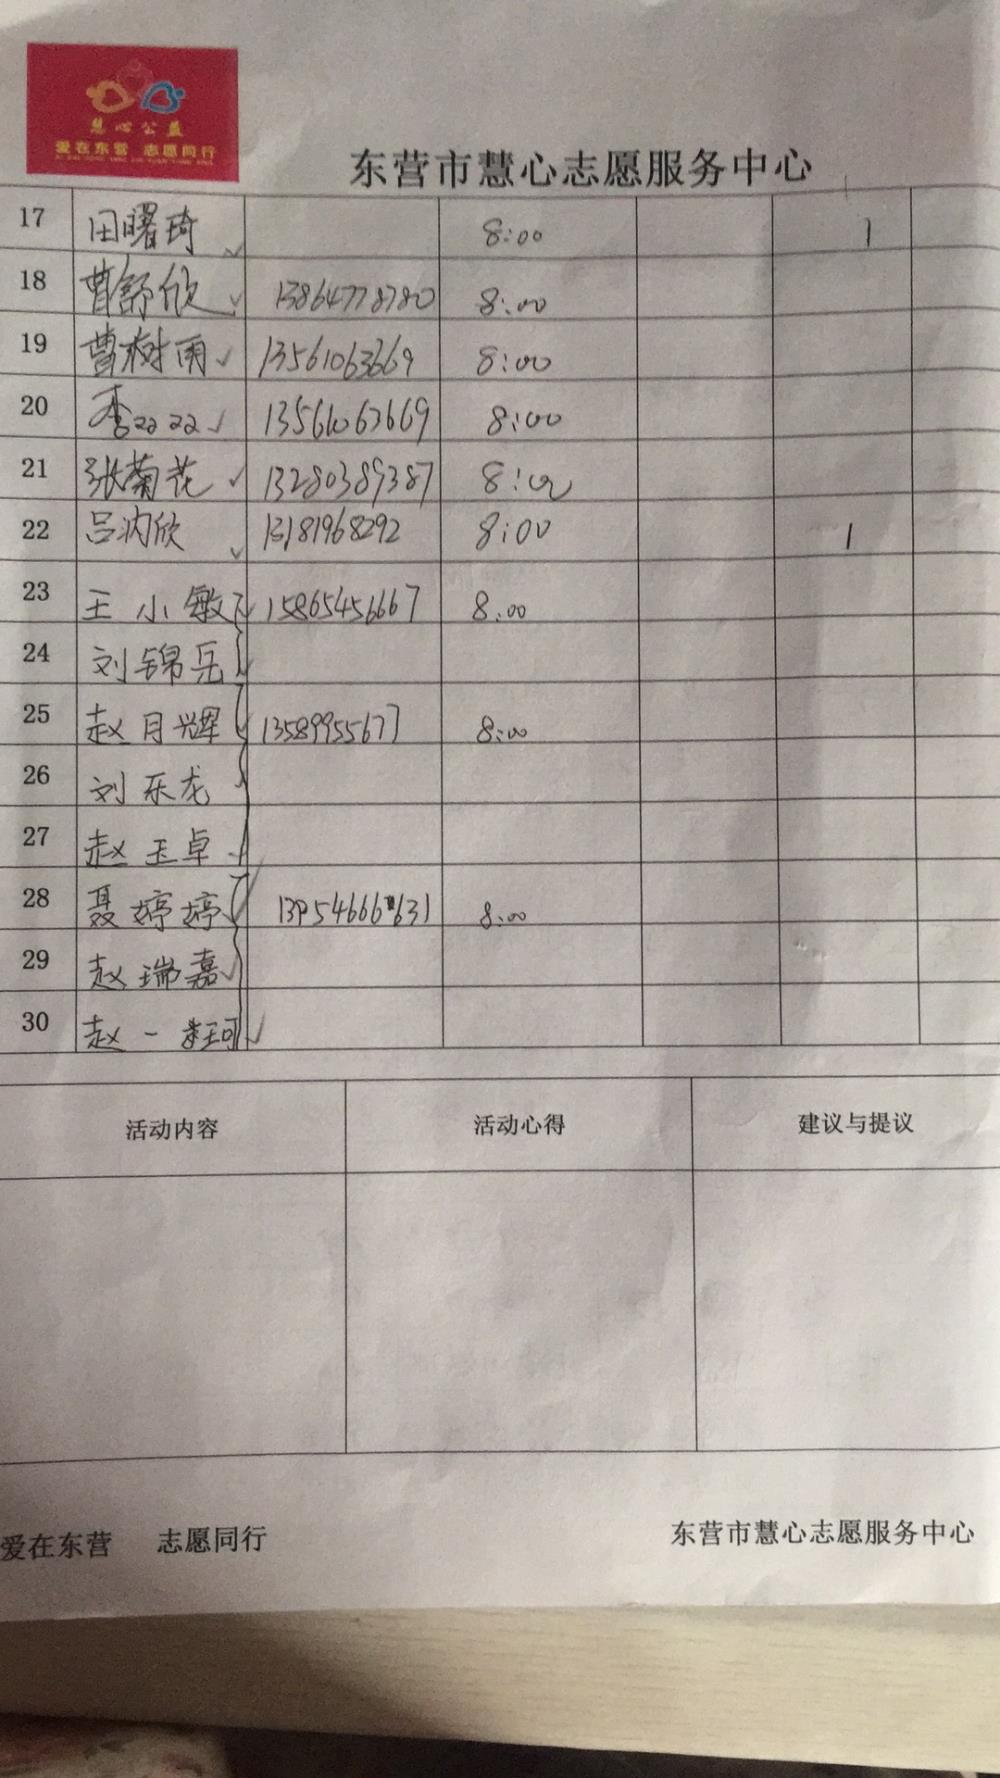 慧心公益
爱在东营 志愿同行
东营市慧心志愿服务中心
17 田曙琦 8:00 1
18 曹舒欣 13864778780 8:00
19 曹树雨 13561063669 8:00
20 李 13561063669 8:00
21 张菊花 13280389387 8:00
22 吕沩欣 13181968292 8:00 1
23 王小敏 15865456667 8:00
24 刘锦岳
25 赵月辉 13589955677 8:00
26 刘乐龙
27 赵玉卓
28 聂婷婷 13954666631 8:00
29 赵瑞嘉
30 赵一珂
活动内容 活动心得 建议与提议
爱在东营 志愿同行 东营市慧心志愿服务中心